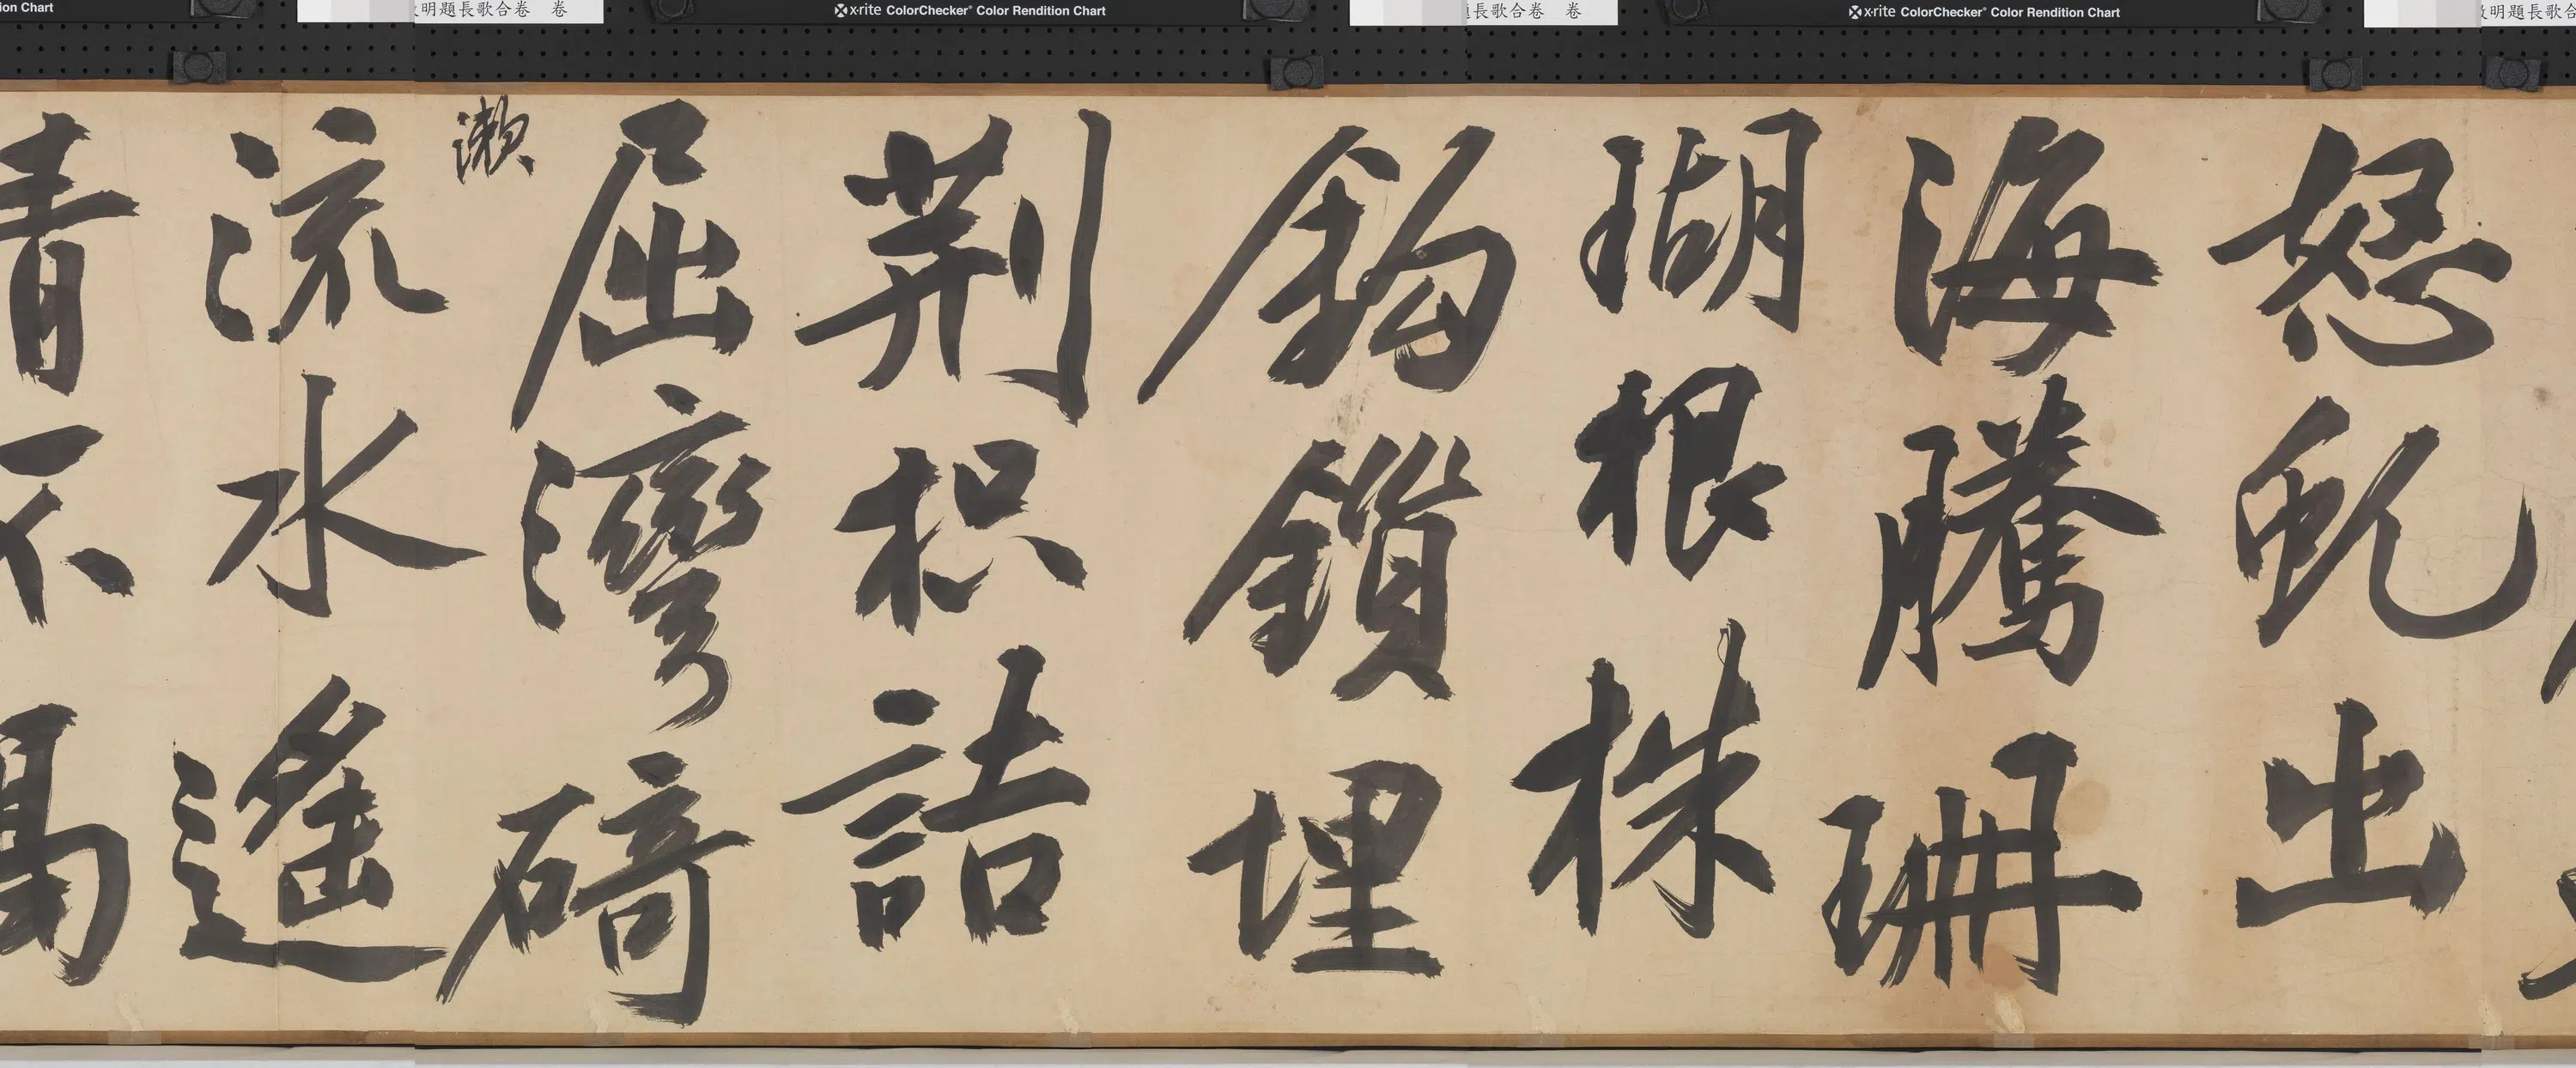 ion Chart
明題長歌合卷 卷
x-rite ColorChecker Color Rendition Chart
長歌合卷 卷
x-rite ColorChecker Color Rendition Chart
明題長歌合
怒虬出
海騰珊
瑚根株
鉤鎖埋
荊枳詰
屈灣碕
漱
流水遙
青不